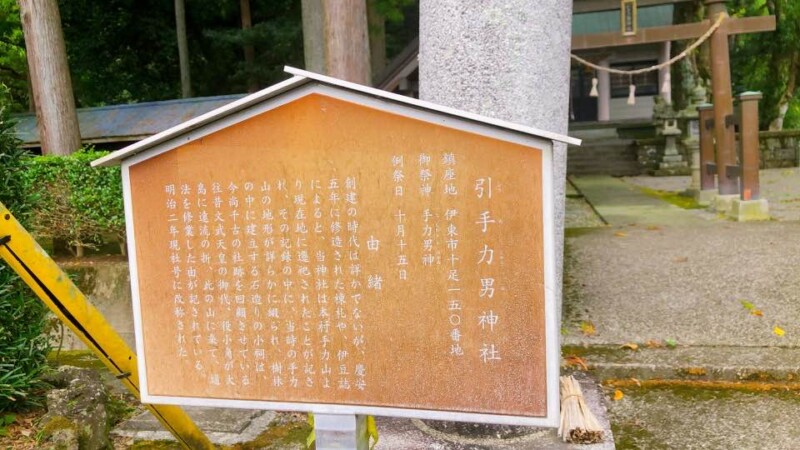 引手力男神社
鎮座地 伊東市十足一五〇番地
御祭神 手力男神
例祭日 十月十五日
由緒
創建の時代は詳かでないが、慶安
五年に修造された棟札や、伊豆誌
によると、当神社は本村手力山よ
り現在地に遷祀されたことが記さ
れ、その記録の中に、当時の手力
山の地形が詳らかに綴られ、樹林
の中に建立する石造りの小祠は、
今尚千古の社跡を回顧させている。
往昔文武天皇の御代、役小角が大
島に遠流の折、此の山に來て、道
法を修業した由が記されている。
明治二年現社号に改称された。